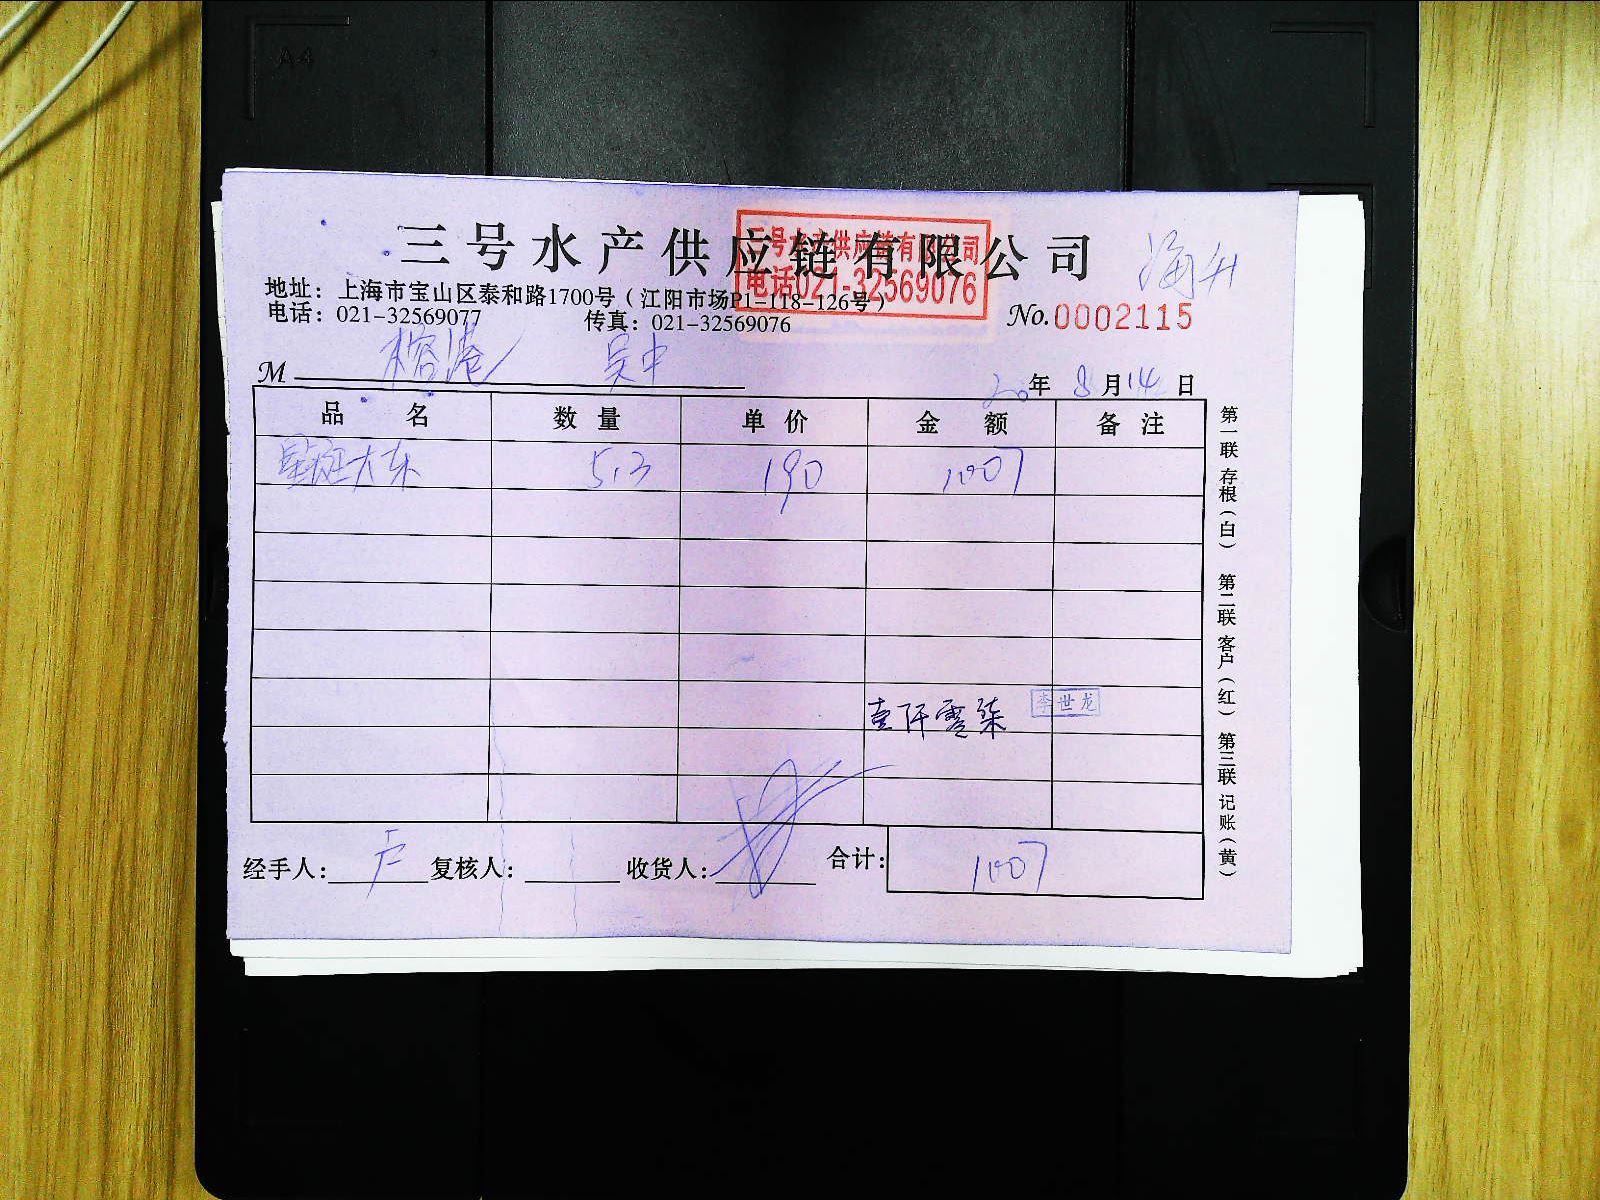 A4
三号水产供应链有限公司
海升
三号水产供应链有限公司
电话021-32569076
地址：上海市宝山区泰和路1700号（江阳市场P1-118-126号）
电话：021-32569077 传真：021-32569076
No.0002115
M 榕港 吴中
20年8月14日
品名 数量 单价 金额 备注
星斑大东 5.3 190 1007
壹仟零柒 李世龙
经手人：卢 复核人： 收货人： 合计：1007
第一联 存根（白） 第二联 客户（红） 第三联 记账（黄）